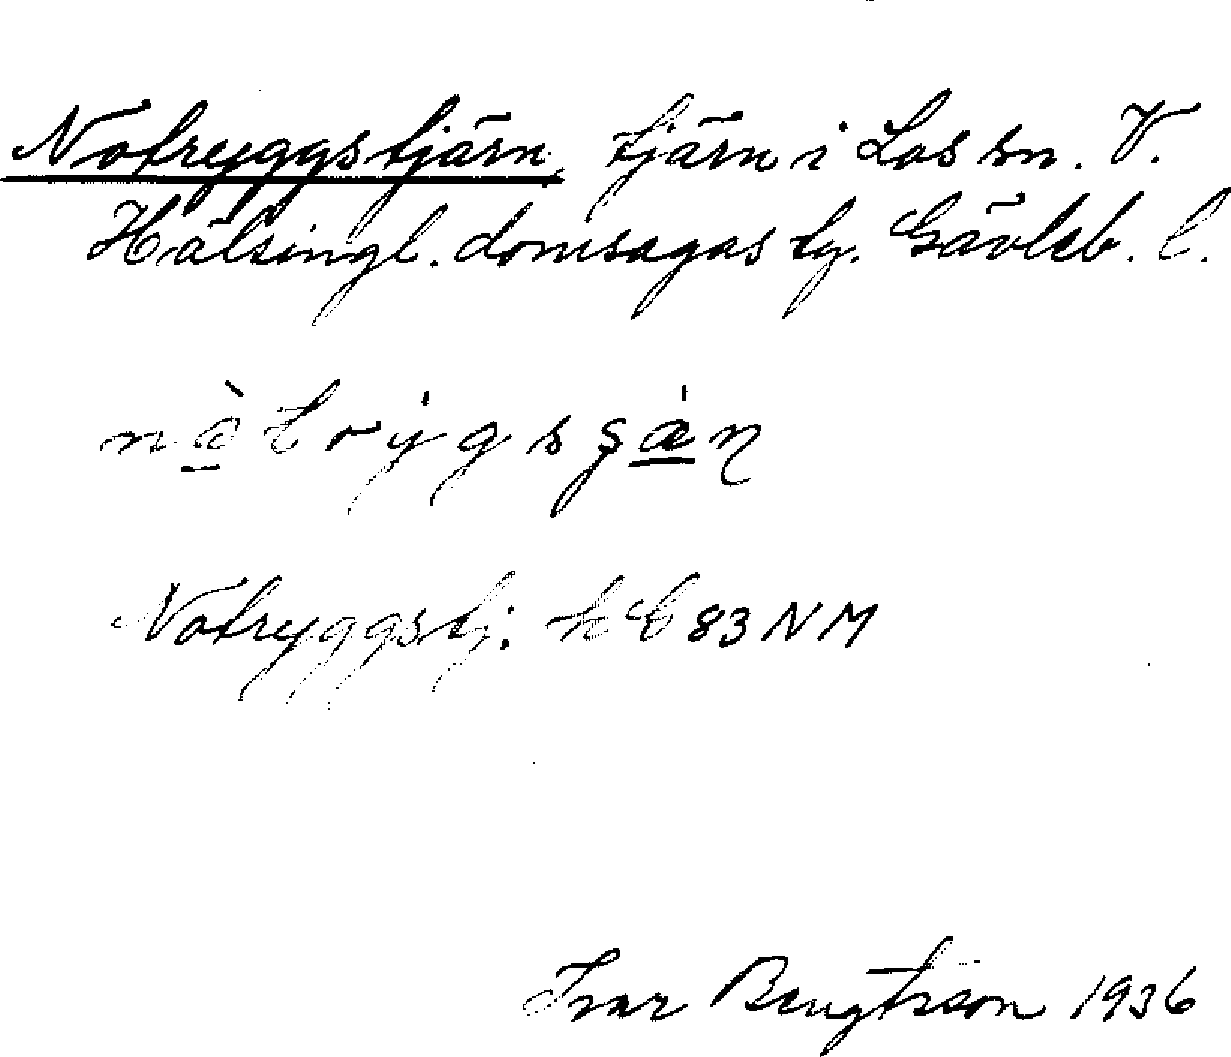 Notryggstjärn, tjärn i Los sn. V.
Hälsingl. domsagas tg. Gävleb. l.
Notryggstj. 83 NM
Ivar Bengtsson 1936